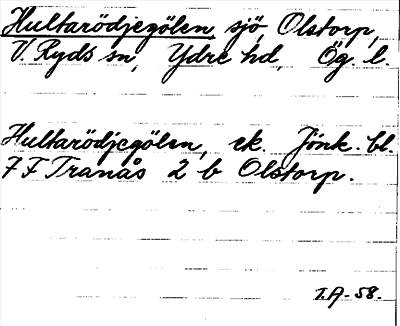 Hultarödjegölen sjö Olstorp,
V. Ryds sn, Ydre hd, Ög. l.
Hultarödjegölen, ek. Jönk. bl.
7 F Tranås 2 b Olstorp.
I.A-58.